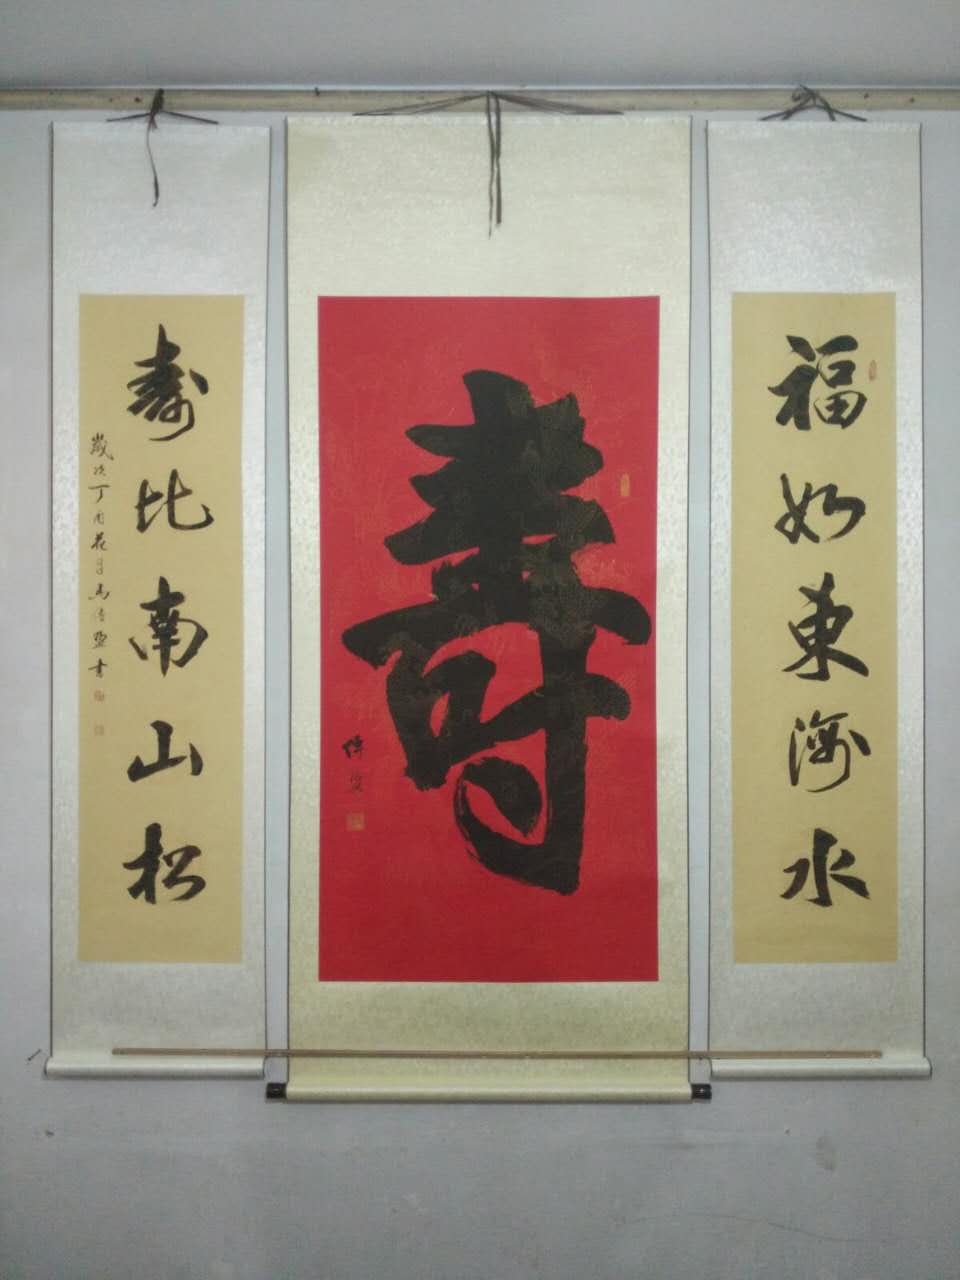 福如東海水
壽
壽比南山松
歲次丁酉花月馬傳盈書